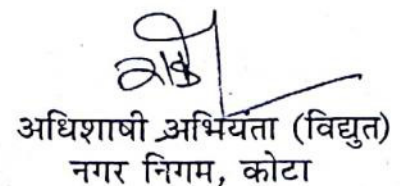 अधिशाषी अभियंता (विद्युत)
नगर निगम, कोटा